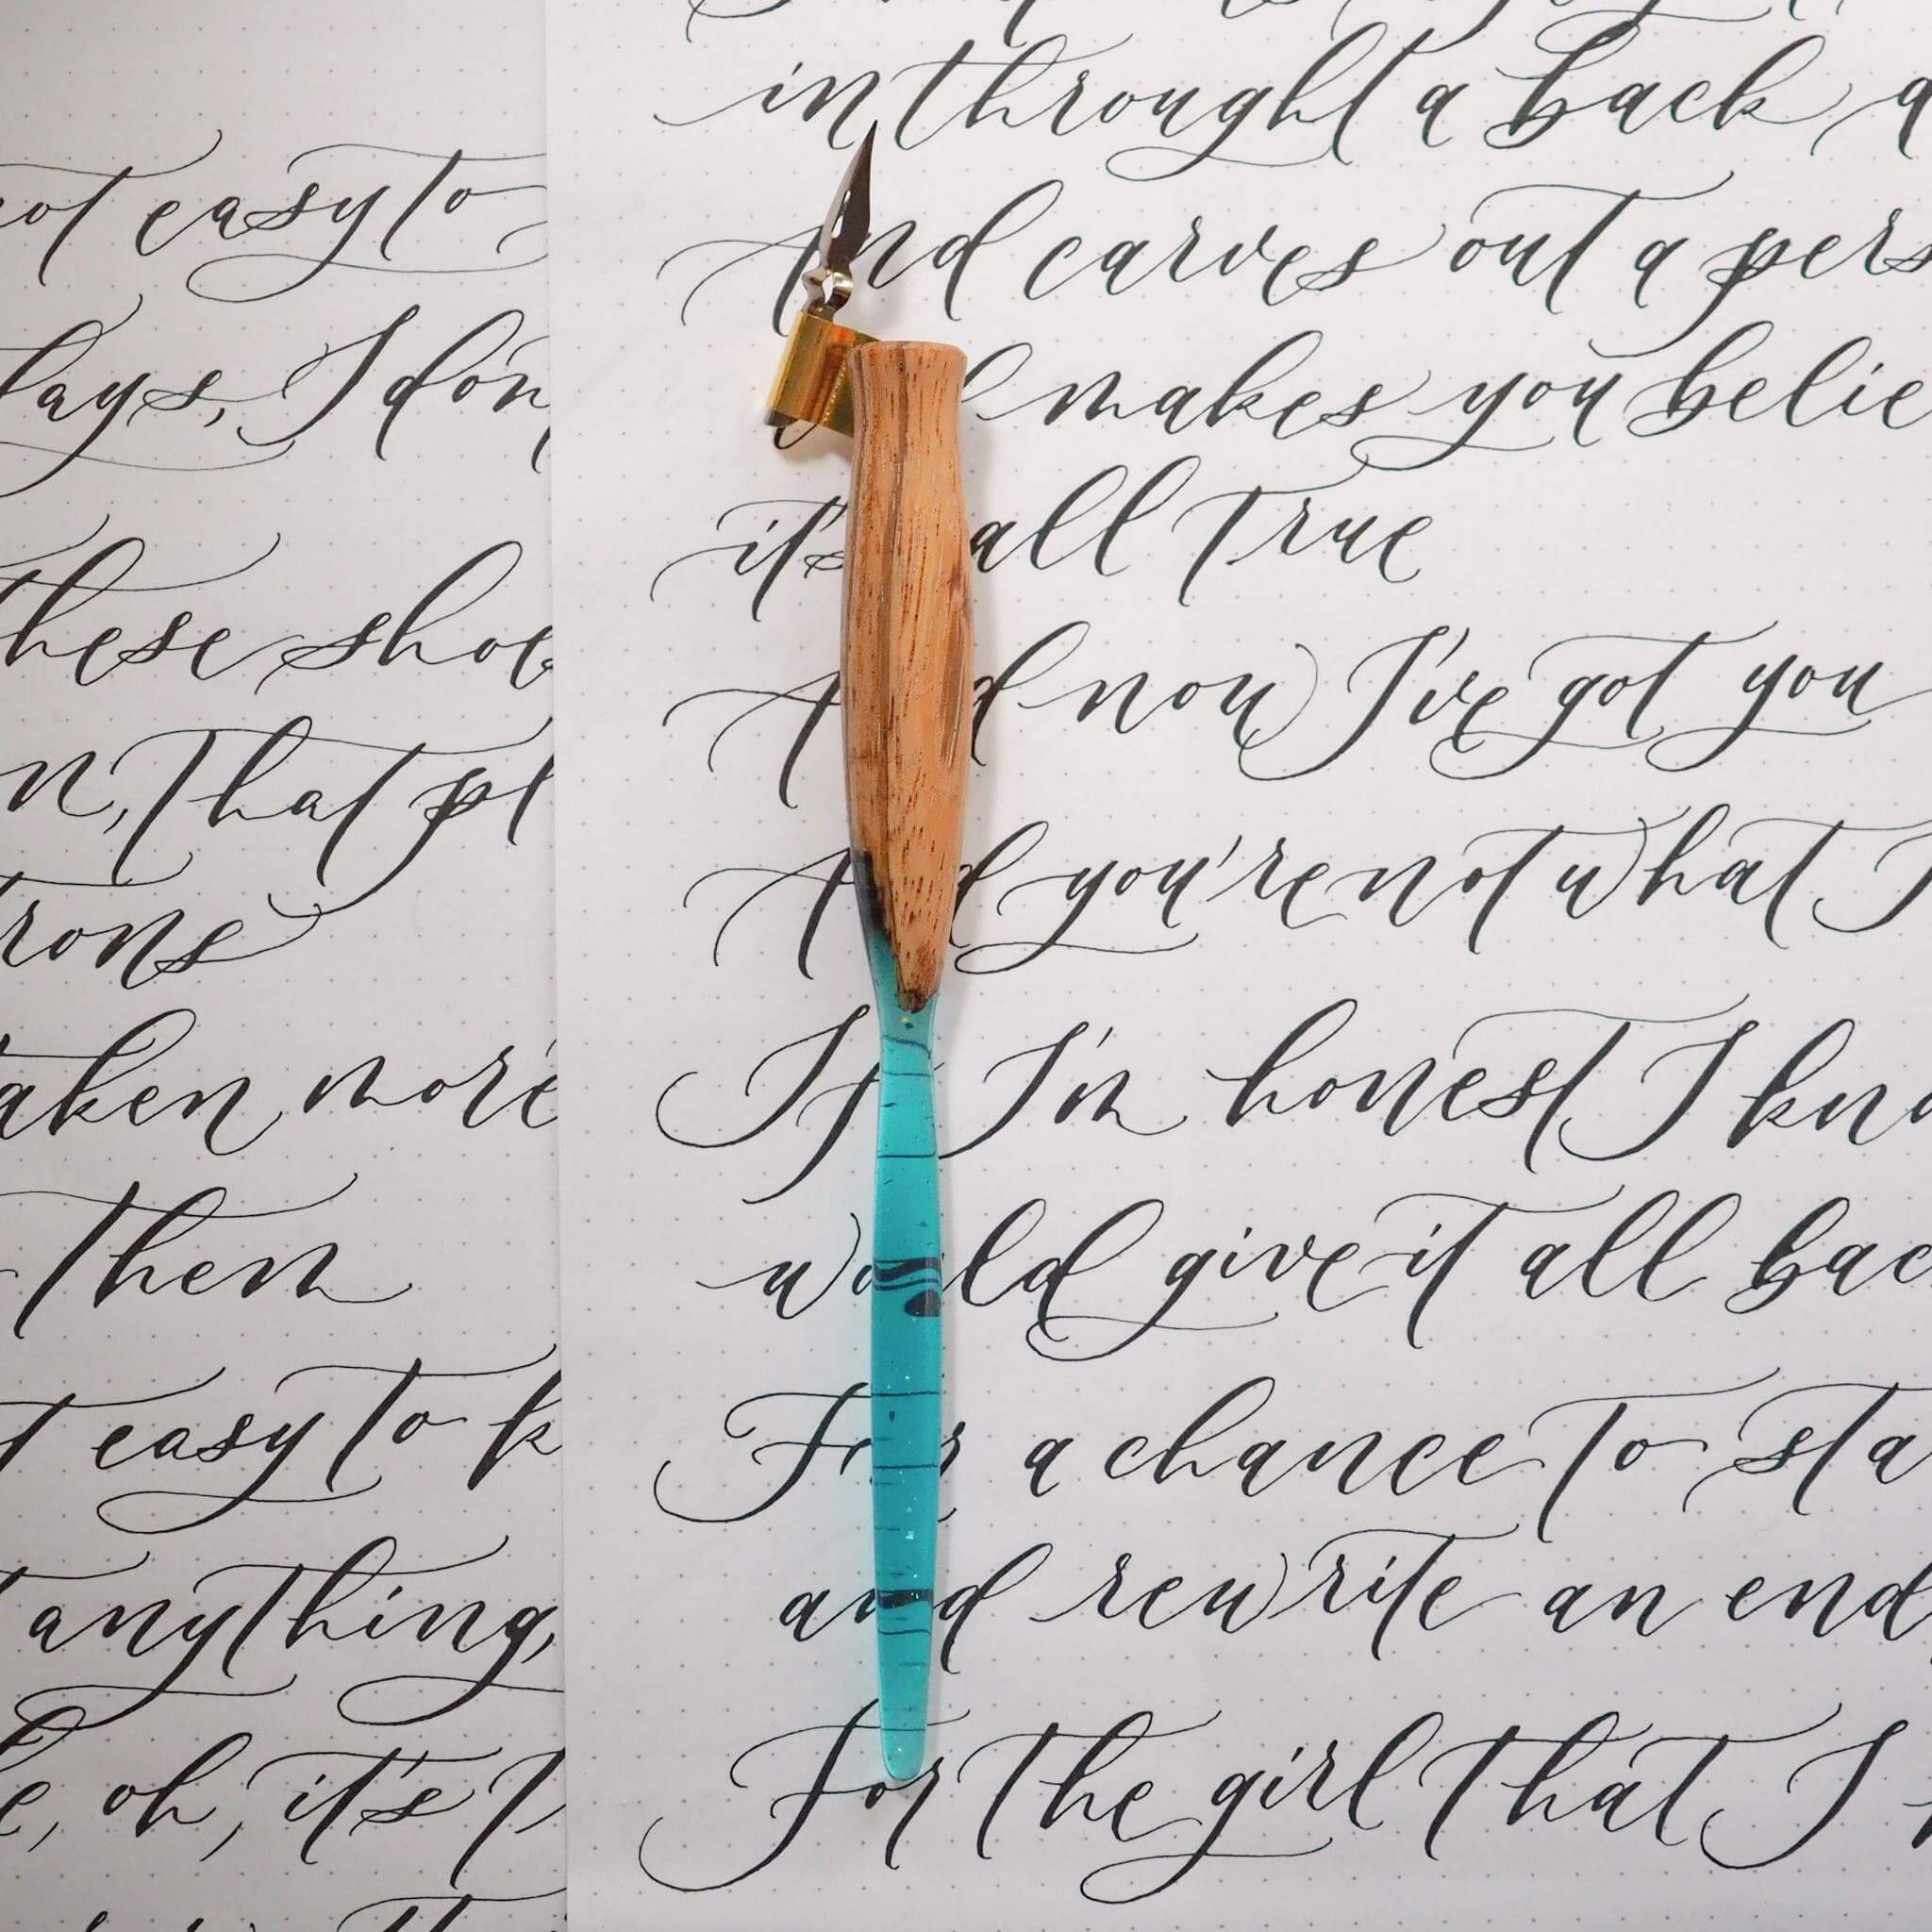 ot easy to
days, I don
these shoe
n, that pl
rons
aken more
then
t easy to k
t anything,
e, oh, it's t
in throught a back
And carves out a pers
makes you belie
it's all true
And now I've got you
And you're not what I
If I'm honest I kno
would give it all bac
For a chance to sta
and rewrite an end
For the girl that I